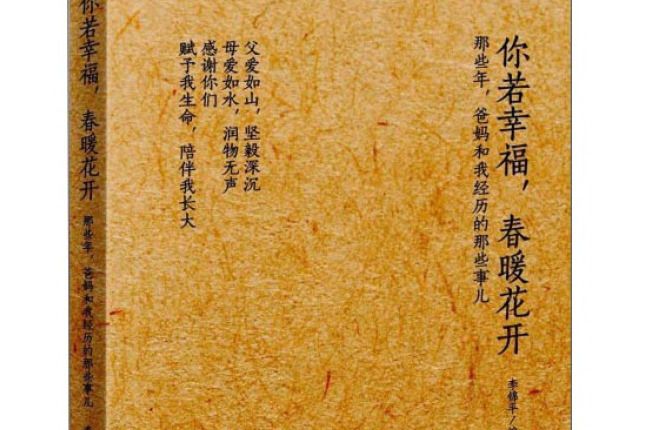 你若幸福，春暖花开
那些年，爸妈和我经历的那些事儿
李锦平/
父爱如山，坚毅深沉
母爱如水，润物无声
感谢你们
赋予我生命，陪伴我长大
你若幸福，春暖花开
那些年，爸妈和我经历的那些事儿